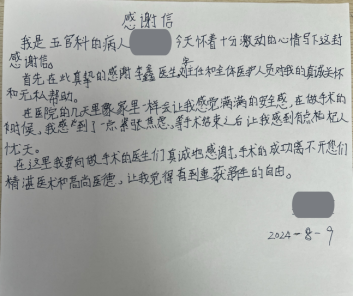 感谢信
我是五官科的病人 今天怀着十分激动的心情写下这封
感谢信。
首先在此真挚的感谢李鑫医生,主任和全体医护人员对我的真诚关怀
和无私帮助。
在医院的几天里象家里一样会让我感觉满满的安全感,在做手术的
时候,我感到了一点紧张焦虑,等手术结束之后让我感到有点杞人
忧天。
在这里我要向做手术的医生们真诚地感谢,手术的成功离不开您们
精湛医术和高尚医德,让我觉得有到重获新生的自由。
2024-8-9